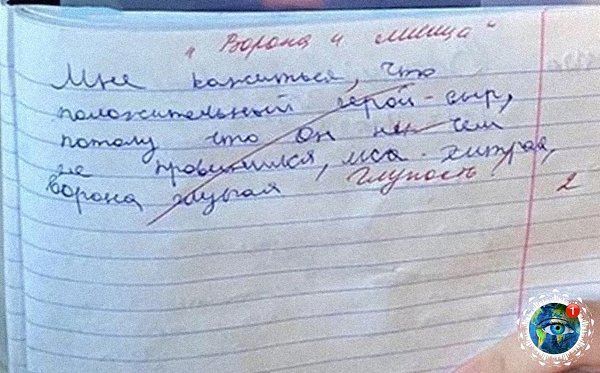 "Ворона и лисица"
Мне кажиться, что
положительный герой - сыр,
потому что он не чем
не провинился, лиса - хитрая,
ворона глупая Глупость
2
1